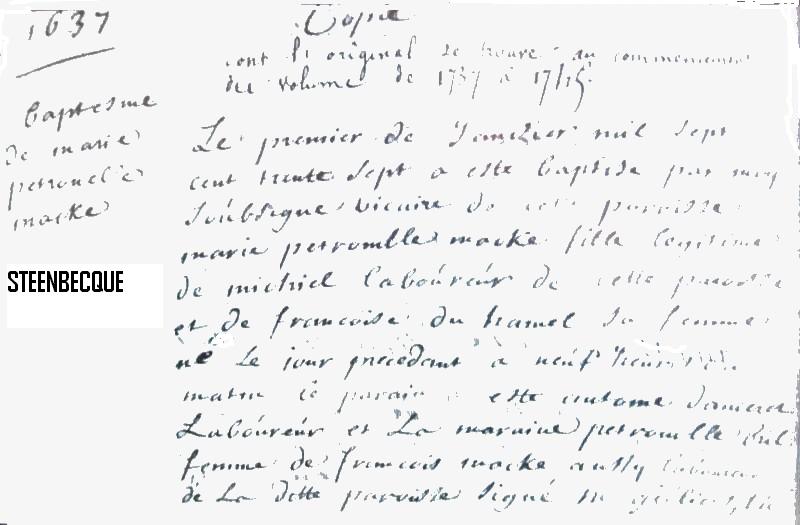 1637
Copie
dont l'original se trouve au commencement
du volume de 1737 à 1745
baptesme
de marie
petronelle
macke
STEENBECQUE
Le premier de Janvier mil sept
cent trente sept a este baptisé par moy
soubsigné vicaire de cette paroisse
marie petronille macke fille legitime
de michiel laboureur de cette paroisse
et de francoise du hamel sa femme
né le jour precedant a neuf heures
matin le parain este antome
Laboureur et La maraine petronille
femme de francois macke aussy laboureur
de La ditte paroisse signé